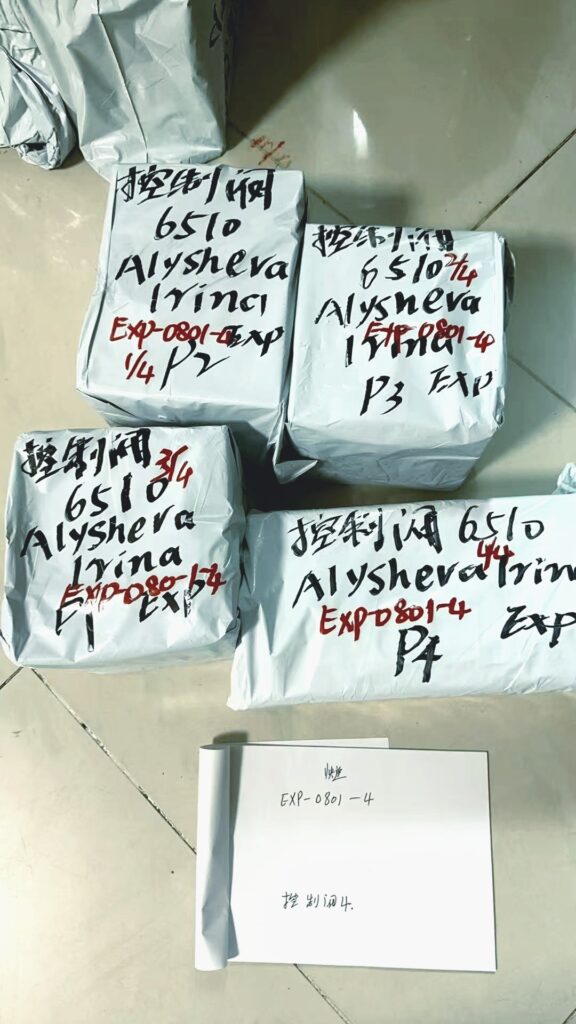 控制阀
6510
Alysheva
Irina
EXP-0801-4 Exp
1/4 P2
控制阀
6510 2/4
Alysheva
EXP-0801-4
Irina
P3 Exp
控制阀
3/4
6510
Alysheva
Irina
EXP-0801-4
P1 Exp
控制阀 6510
4/4
Alysheva Irin
EXP-0801-4
Exp
P4
快递
EXP-0801-4
控制阀4.